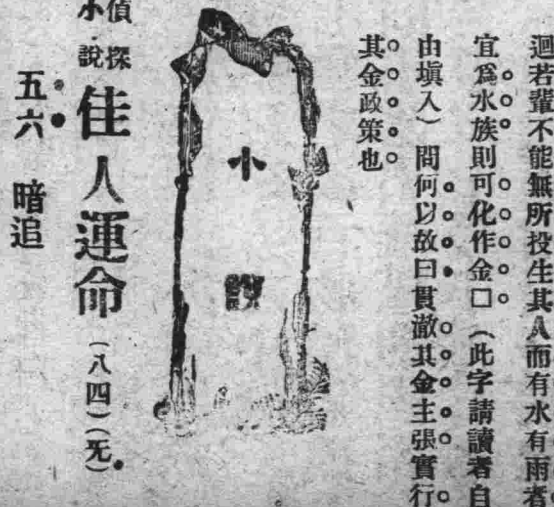 迴若輩不能無所投生其人而有水有雨者
宜爲水族則可化作金□（此字請讀者自
由塡入）問何以故曰貫澈其金主張實行
其金政策也
小說
偵探小說 佳人運命（八四）（旡）
五六 暗追